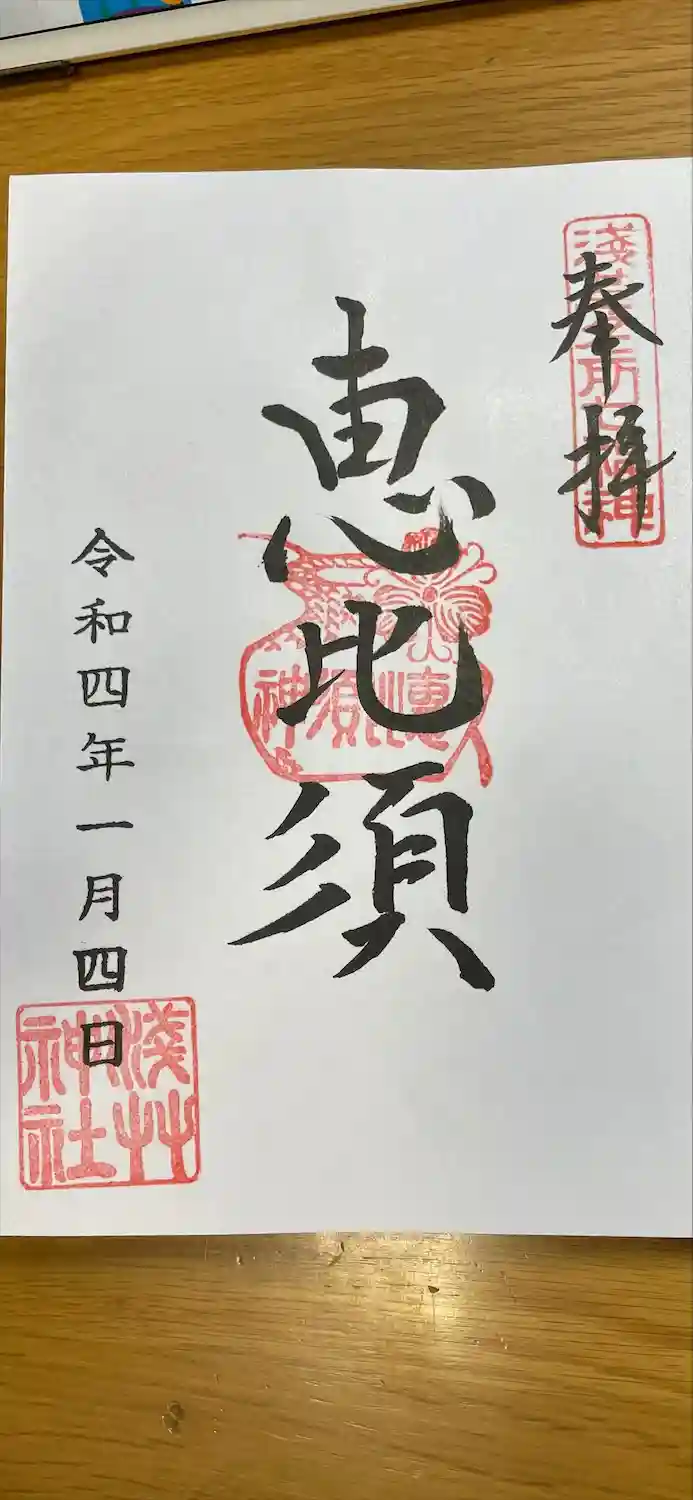 奉拝
浅草名所七福神
恵比須
恵比須神
令和四年一月四日
浅草神社